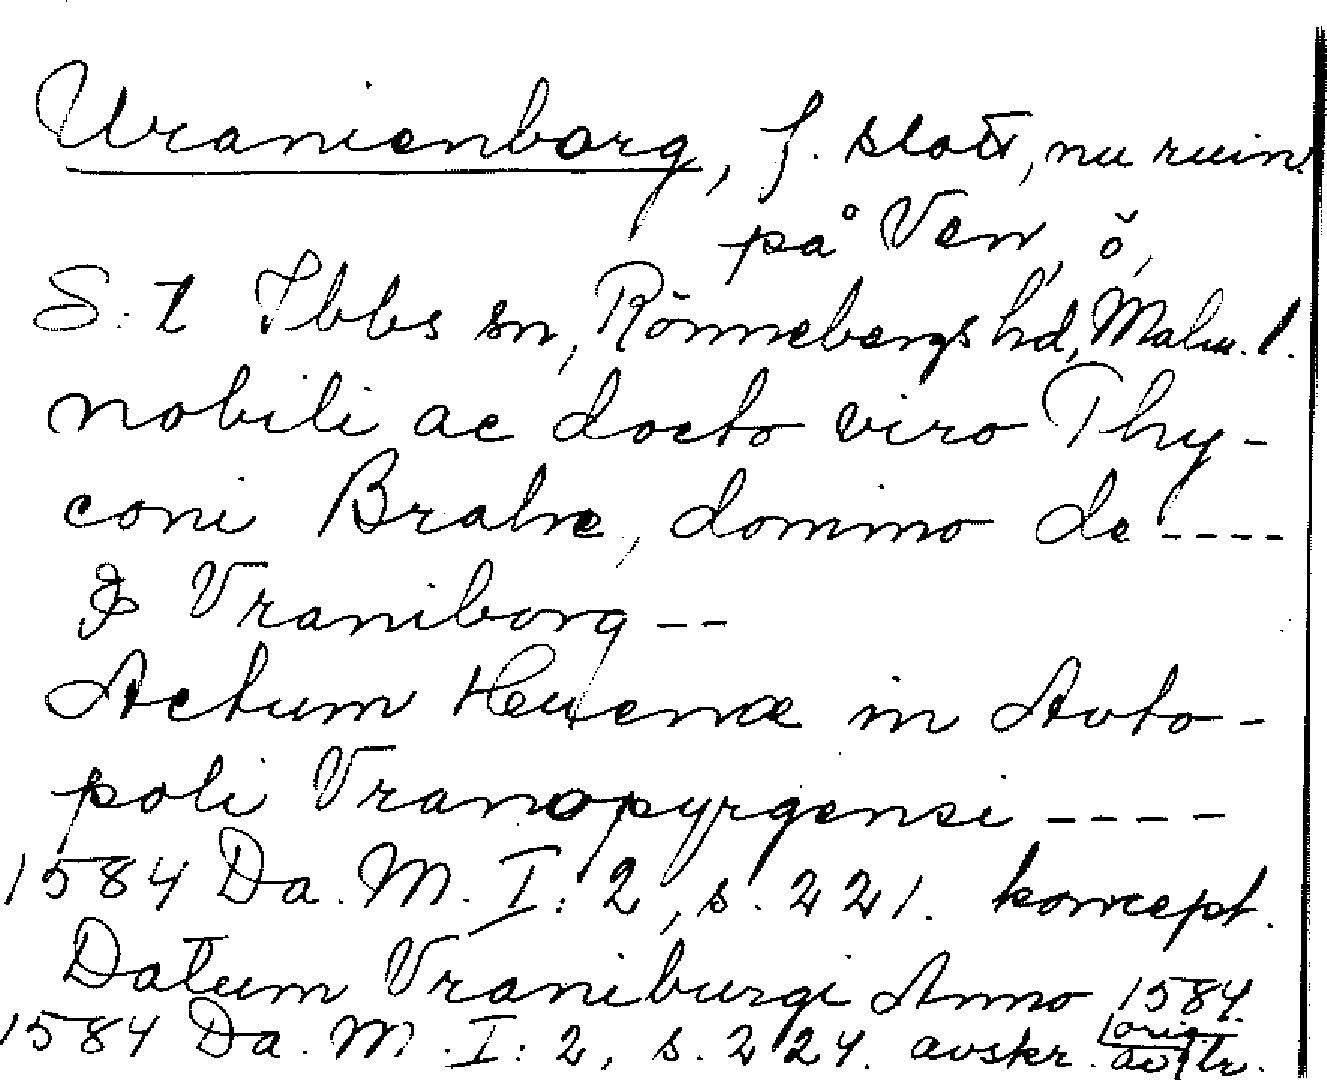 Uranienborg, f. slott, nu ruin
på Ven, ö,
S:t Ibbs sn, Rönnebergs hd, Malm. l.
nobili ac docto viro Thy-
coni Brahe, domino de ----
& Vraniborg --
Actum Heuenæ in Avto-
poli Vranopyrgensi ----
1584 Da. M. I: 2, s. 221. koncept.
Datum Vraniburgi Anno 1584.
1584 Da. M. I: 2, s. 224. avskr. orig.